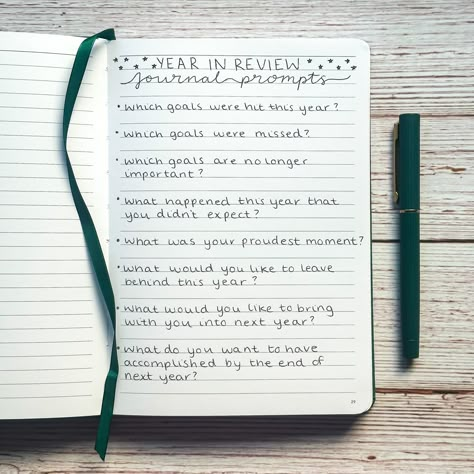 YEAR IN REVIEW
journal prompts
• Which goals were hit this year?
• Which goals were missed?
• Which goals are no longer
important?
• What happened this year that
you didn't expect?
• What was your proudest moment?
• What would you like to leave
behind this year?
• What would you like to bring
with you into next year?
• What do you want to have
accomplished by the end of
next year?